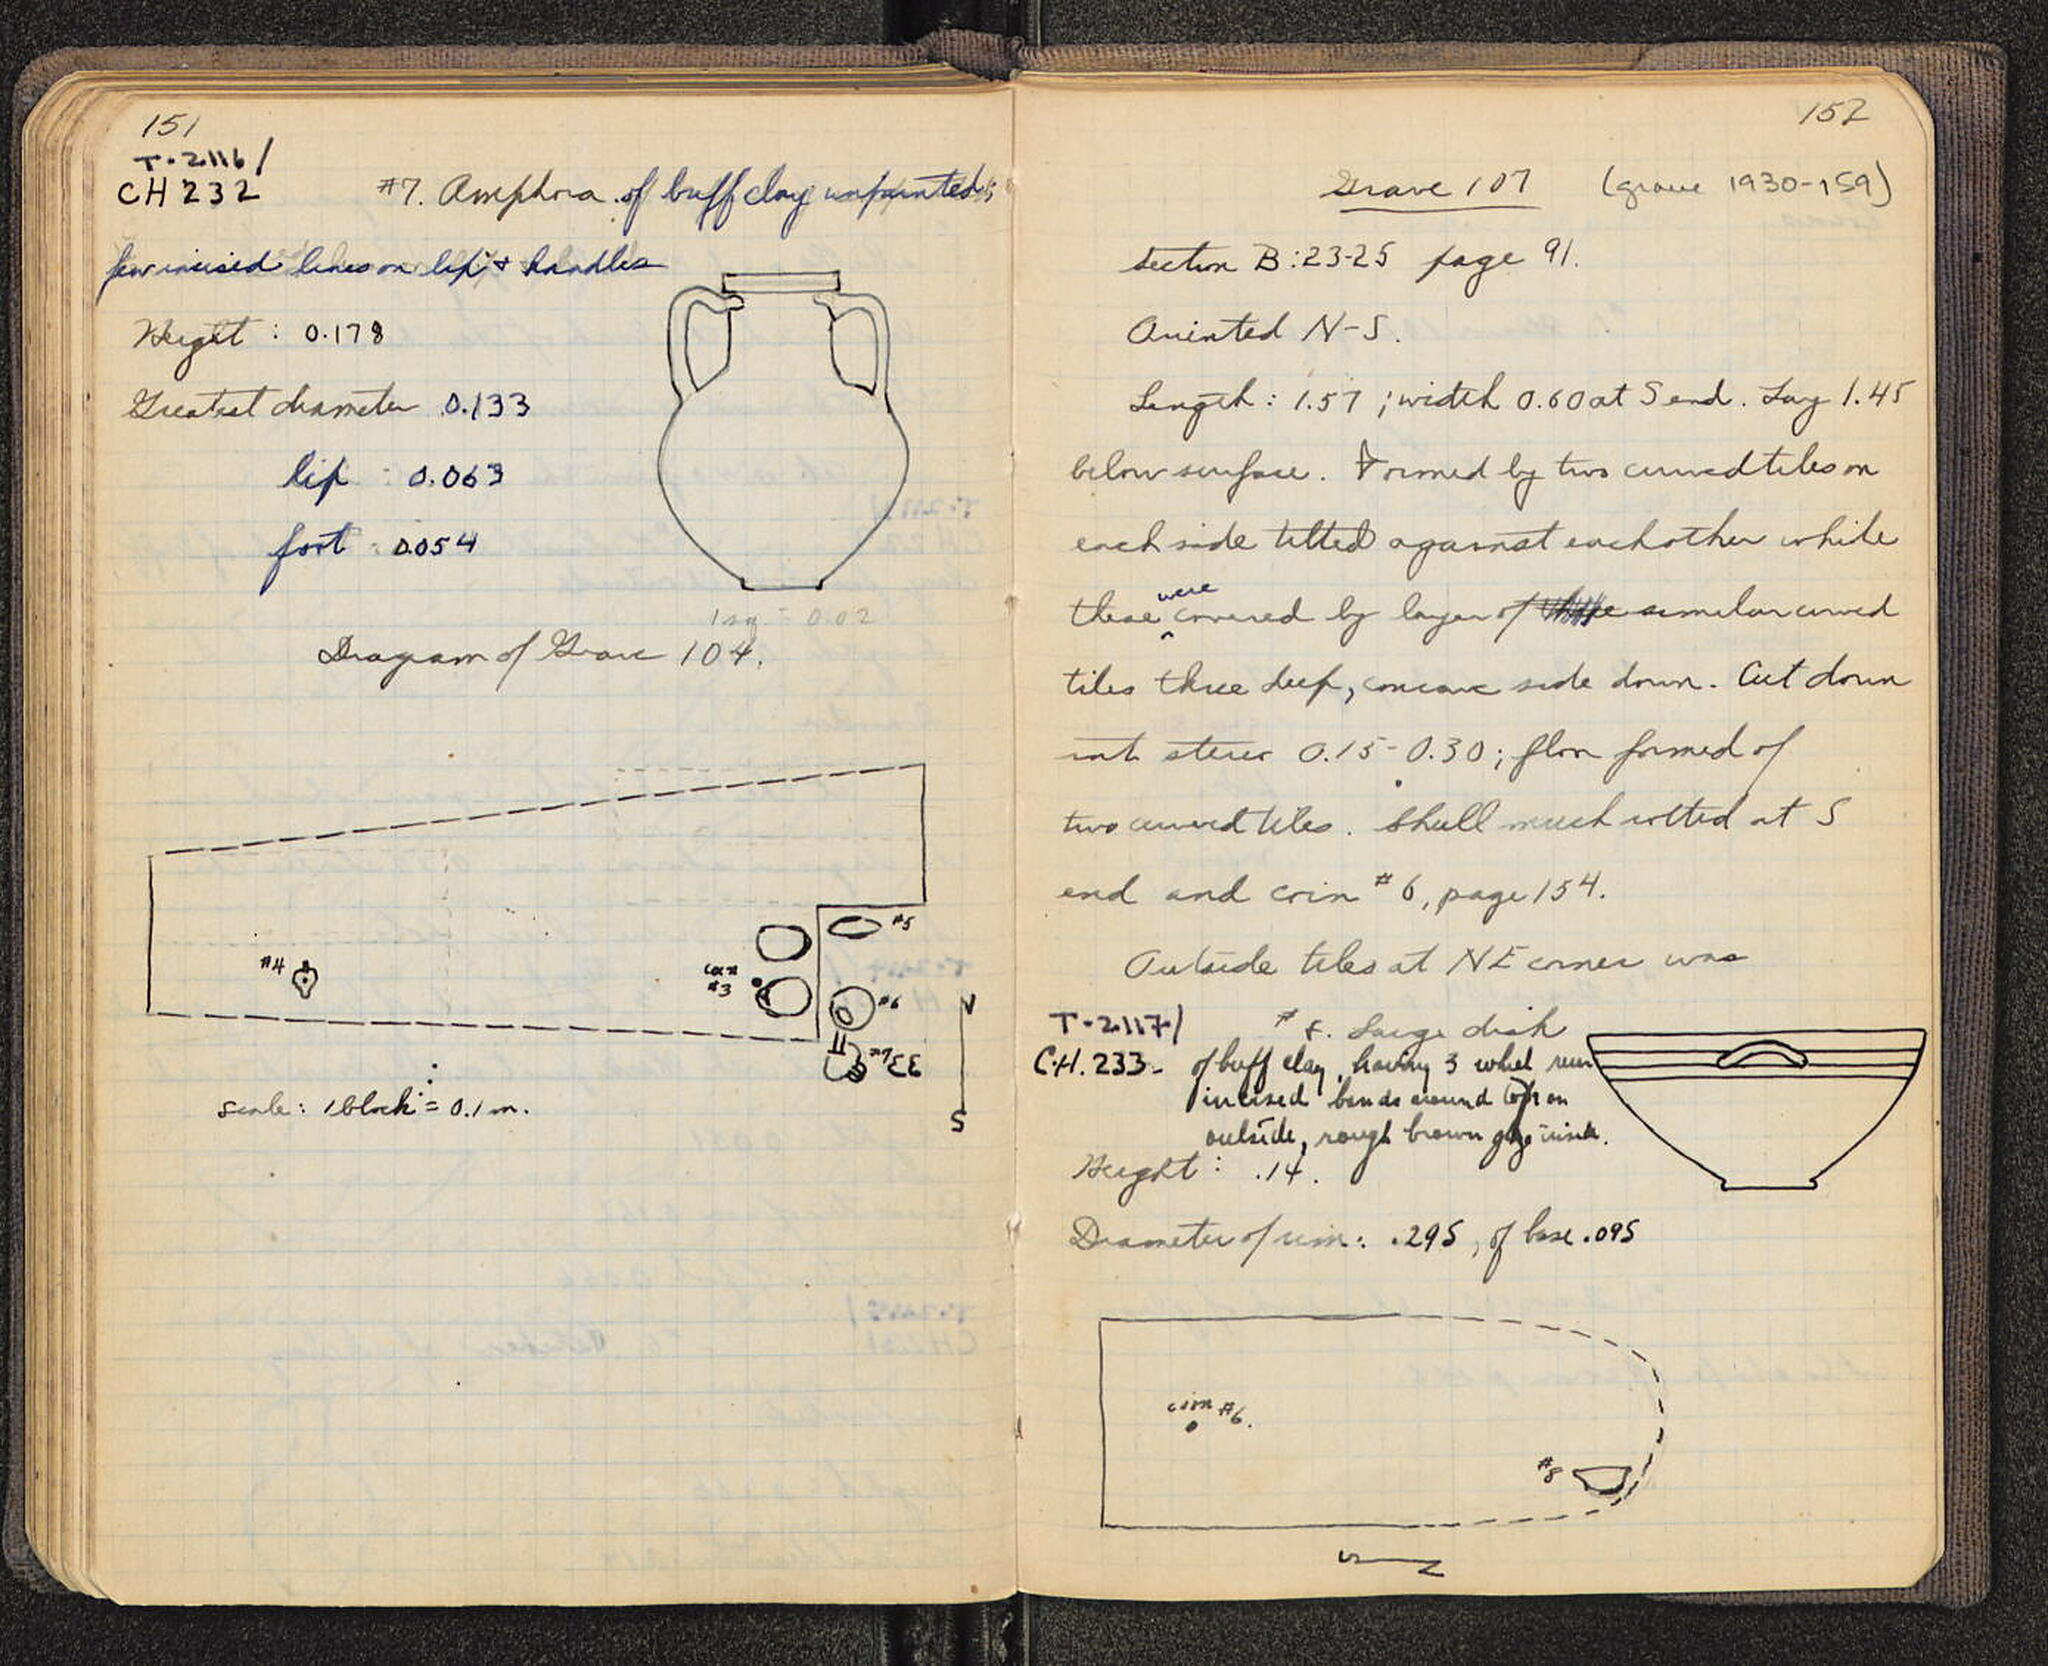 151
T-2116/
CH 232
#7. Amphora of buff clay unpainted;
few incised lines on lip & handles
Height : 0.178
Greatest diameter 0.133
lip : 0.063
foot : 0.054
1 sq = 0.02
Diagram of Grave 104.
#5
#4
coin
#3
#6
#7
N
S
scale: 1 block = 0.1 m.
152
Grave 107 (grave 1930-159)
Section B:23-25 page 91.
Oriented N-S.
Length: 1.57 ; width 0.60 at S end. Lay 1.45
below surface. Formed by two curved tiles on
each side tilted against each other while
these were covered by layer of similar curved
tiles three deep, concave side down. Cut down
into stereo 0.15-0.30; floor formed of
two curved tiles. Skull much rotted at S
end and coin #6, page 154.
Outside tiles at NE corner was
T-2117/
C.H. 233-
#8. Large dish
of buff clay, having 3 wheel run
incised bands around top on
outside, rough brown glaze inside.
Height : .14.
Diameter of rim: .295, of base .095
coin #6.
#8
S N